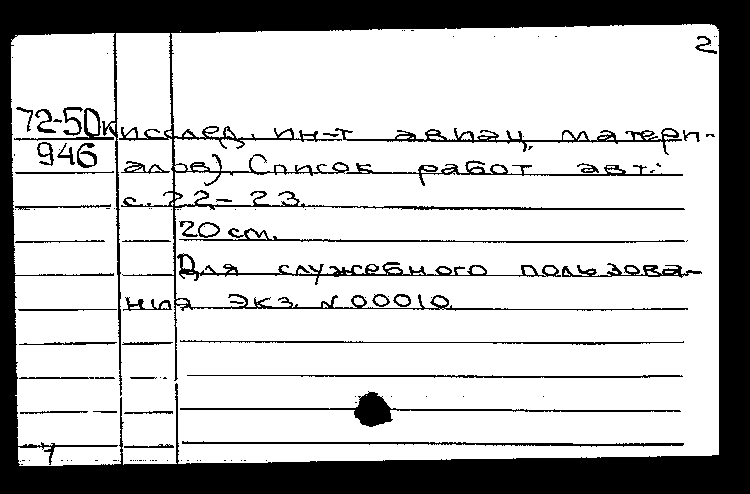 2
72-50к
946
исслед. ин-т авиац. матери-
алов). Список работ авт.:
с. 22-23.
20 см.
Для служебного пользова-
ния Экз. N 00010.